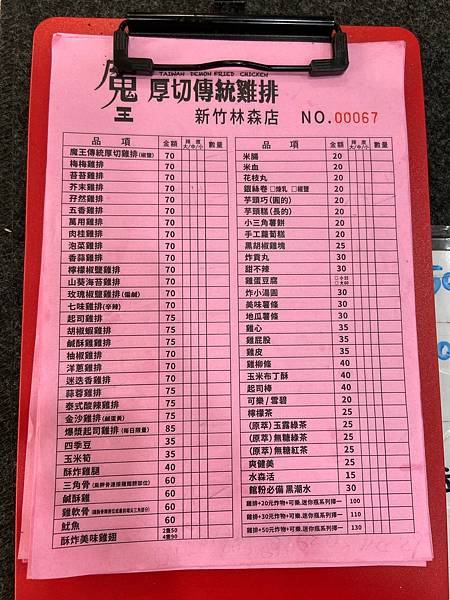 魔王
TAIWAN DEMON FRIED CHICKEN
厚切傳統雞排
新竹林森店 NO.00067
品項 金額 辣度 大/中/小 數量
魔王傳統厚切雞排(椒鹽) 70
梅梅雞排 70
苔苔雞排 70
芥末雞排 70
孜然雞排 70
五香雞排 70
萬用雞排 70
肉桂雞排 70
泡菜雞排 70
香蒜雞排 70
檸檬椒鹽雞排 70
山葵海苔雞排 70
玫瑰椒鹽雞排(偏鹹) 70
七味雞排(辛辣) 70
起司雞排 75
胡椒蝦雞排 75
鹹酥雞雞排 75
柚椒雞排 70
洋蔥雞排 70
迷迭香雞排 70
蒜蓉雞排 75
泰式酸辣雞排 75
金沙雞排(鹹蛋黃) 75
爆漿起司雞排(每日限量) 85
四季豆 35
玉米筍 35
酥炸雞腿 40
三角骨 60
鹹酥雞 60
雞軟骨 60
魷魚 60
酥炸美味雞翅 2隻50 4隻90
品項 金額 辣度 大/中/小 數量
米腸 20
米血 20
花枝丸 20
銀絲卷 □煉乳 □椒鹽 20
芋頭巧(圓的) 20
芋頭糕(長的) 20
小三角薯餅 20
手工蘿蔔糕 20
黑胡椒雞塊 25
炸貢丸 30
甜不辣 30
雞蛋豆腐 □小30 □大60
炸小湯圓 30
美味薯條 30
地瓜薯條 30
雞心 35
雞屁股 35
雞皮 35
雞柳條 40
玉米布丁酥 40
起司棒 40
可樂/雪碧 20
檸檬茶 25
(原萃)玉露綠茶 25
(原萃)無糖綠茶 25
(原萃)無糖紅茶 25
爽健美 25
水森活 15
館粉必備 黑潮水 30
雞排+20元炸物+可樂.迷你瓶系列擇一 100
雞排+30元炸物+可樂.迷你瓶系列擇一 110
雞排+50元炸物+可樂.迷你瓶系列擇一 130